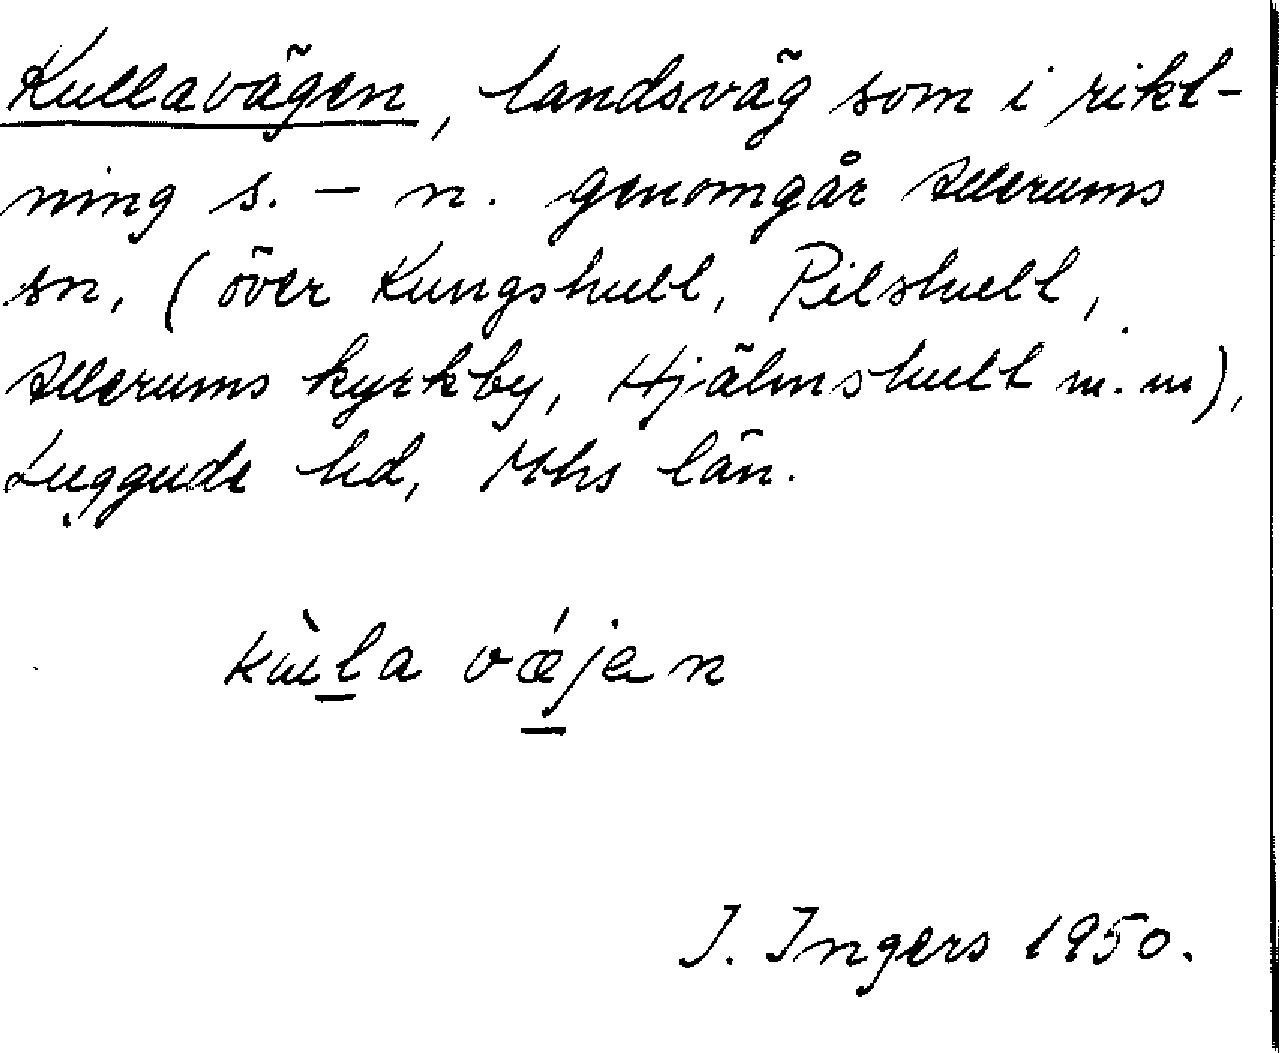 Kullavägen, landsväg som i rikt-
ning s. – n. genomgår Allerums
sn, (över Kungshult, Pilshult,
Allerums kyrkby, Hjälmshult m.m),
Luggude hd, Mhs län.
kùla vǽjen
I. Ingers 1950.